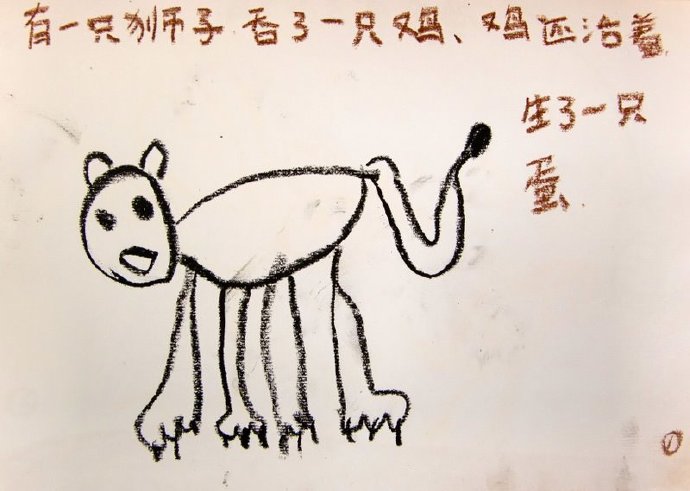 有一只狮子吞了一只鸡、鸡还活着
生了一只
蛋.